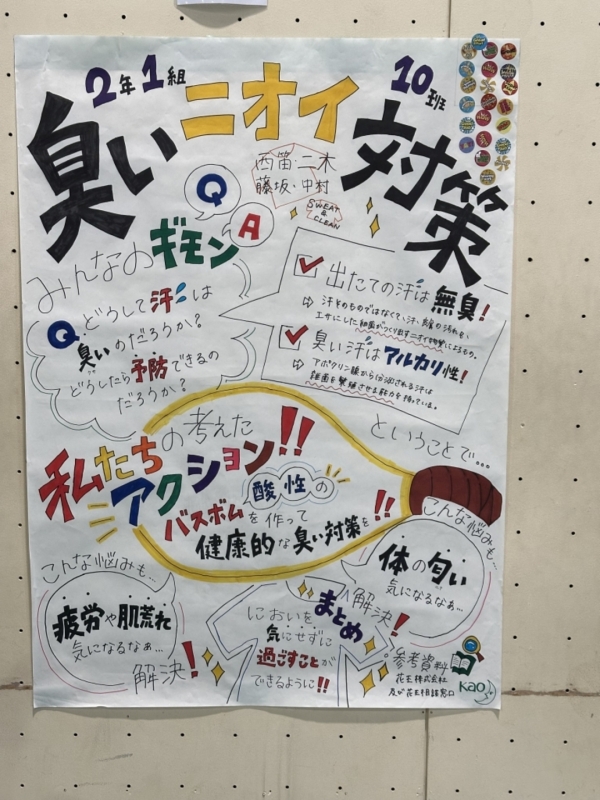 2年1組
10班
臭いニオイ対策
西笛・二木
藤坂、中村
SWEAT
&
CLEAN
Q
A
みんなのギモン
Q.どうして汗は
臭いのだろうか?
どうしたら予防できるの
だろうか?
出たての汗は無臭!
⇨ 汗そのものではなくて、汗、線の汚れを、
エサにした細菌がつくり出すニオイ物質によるもの。
臭い汗はアルカリ性!
⇨ アポクリン腺から分泌される汗は
雑菌を繁殖させる能力を持っている。
ということで…
私たちの考えた
アクション!!
酸性の
バスボムを作って
健康的な臭い対策を!!
こんな悩みも…
疲労や肌荒れ
気になるなぁ…
解決!
こんな悩みも…
体の匂い
気になるなぁ…
解決!
まとめ
においを
気にせずに
過ごすことが
できるように!!
参考資料
花王株式会社
及び花王相談窓口
Kao